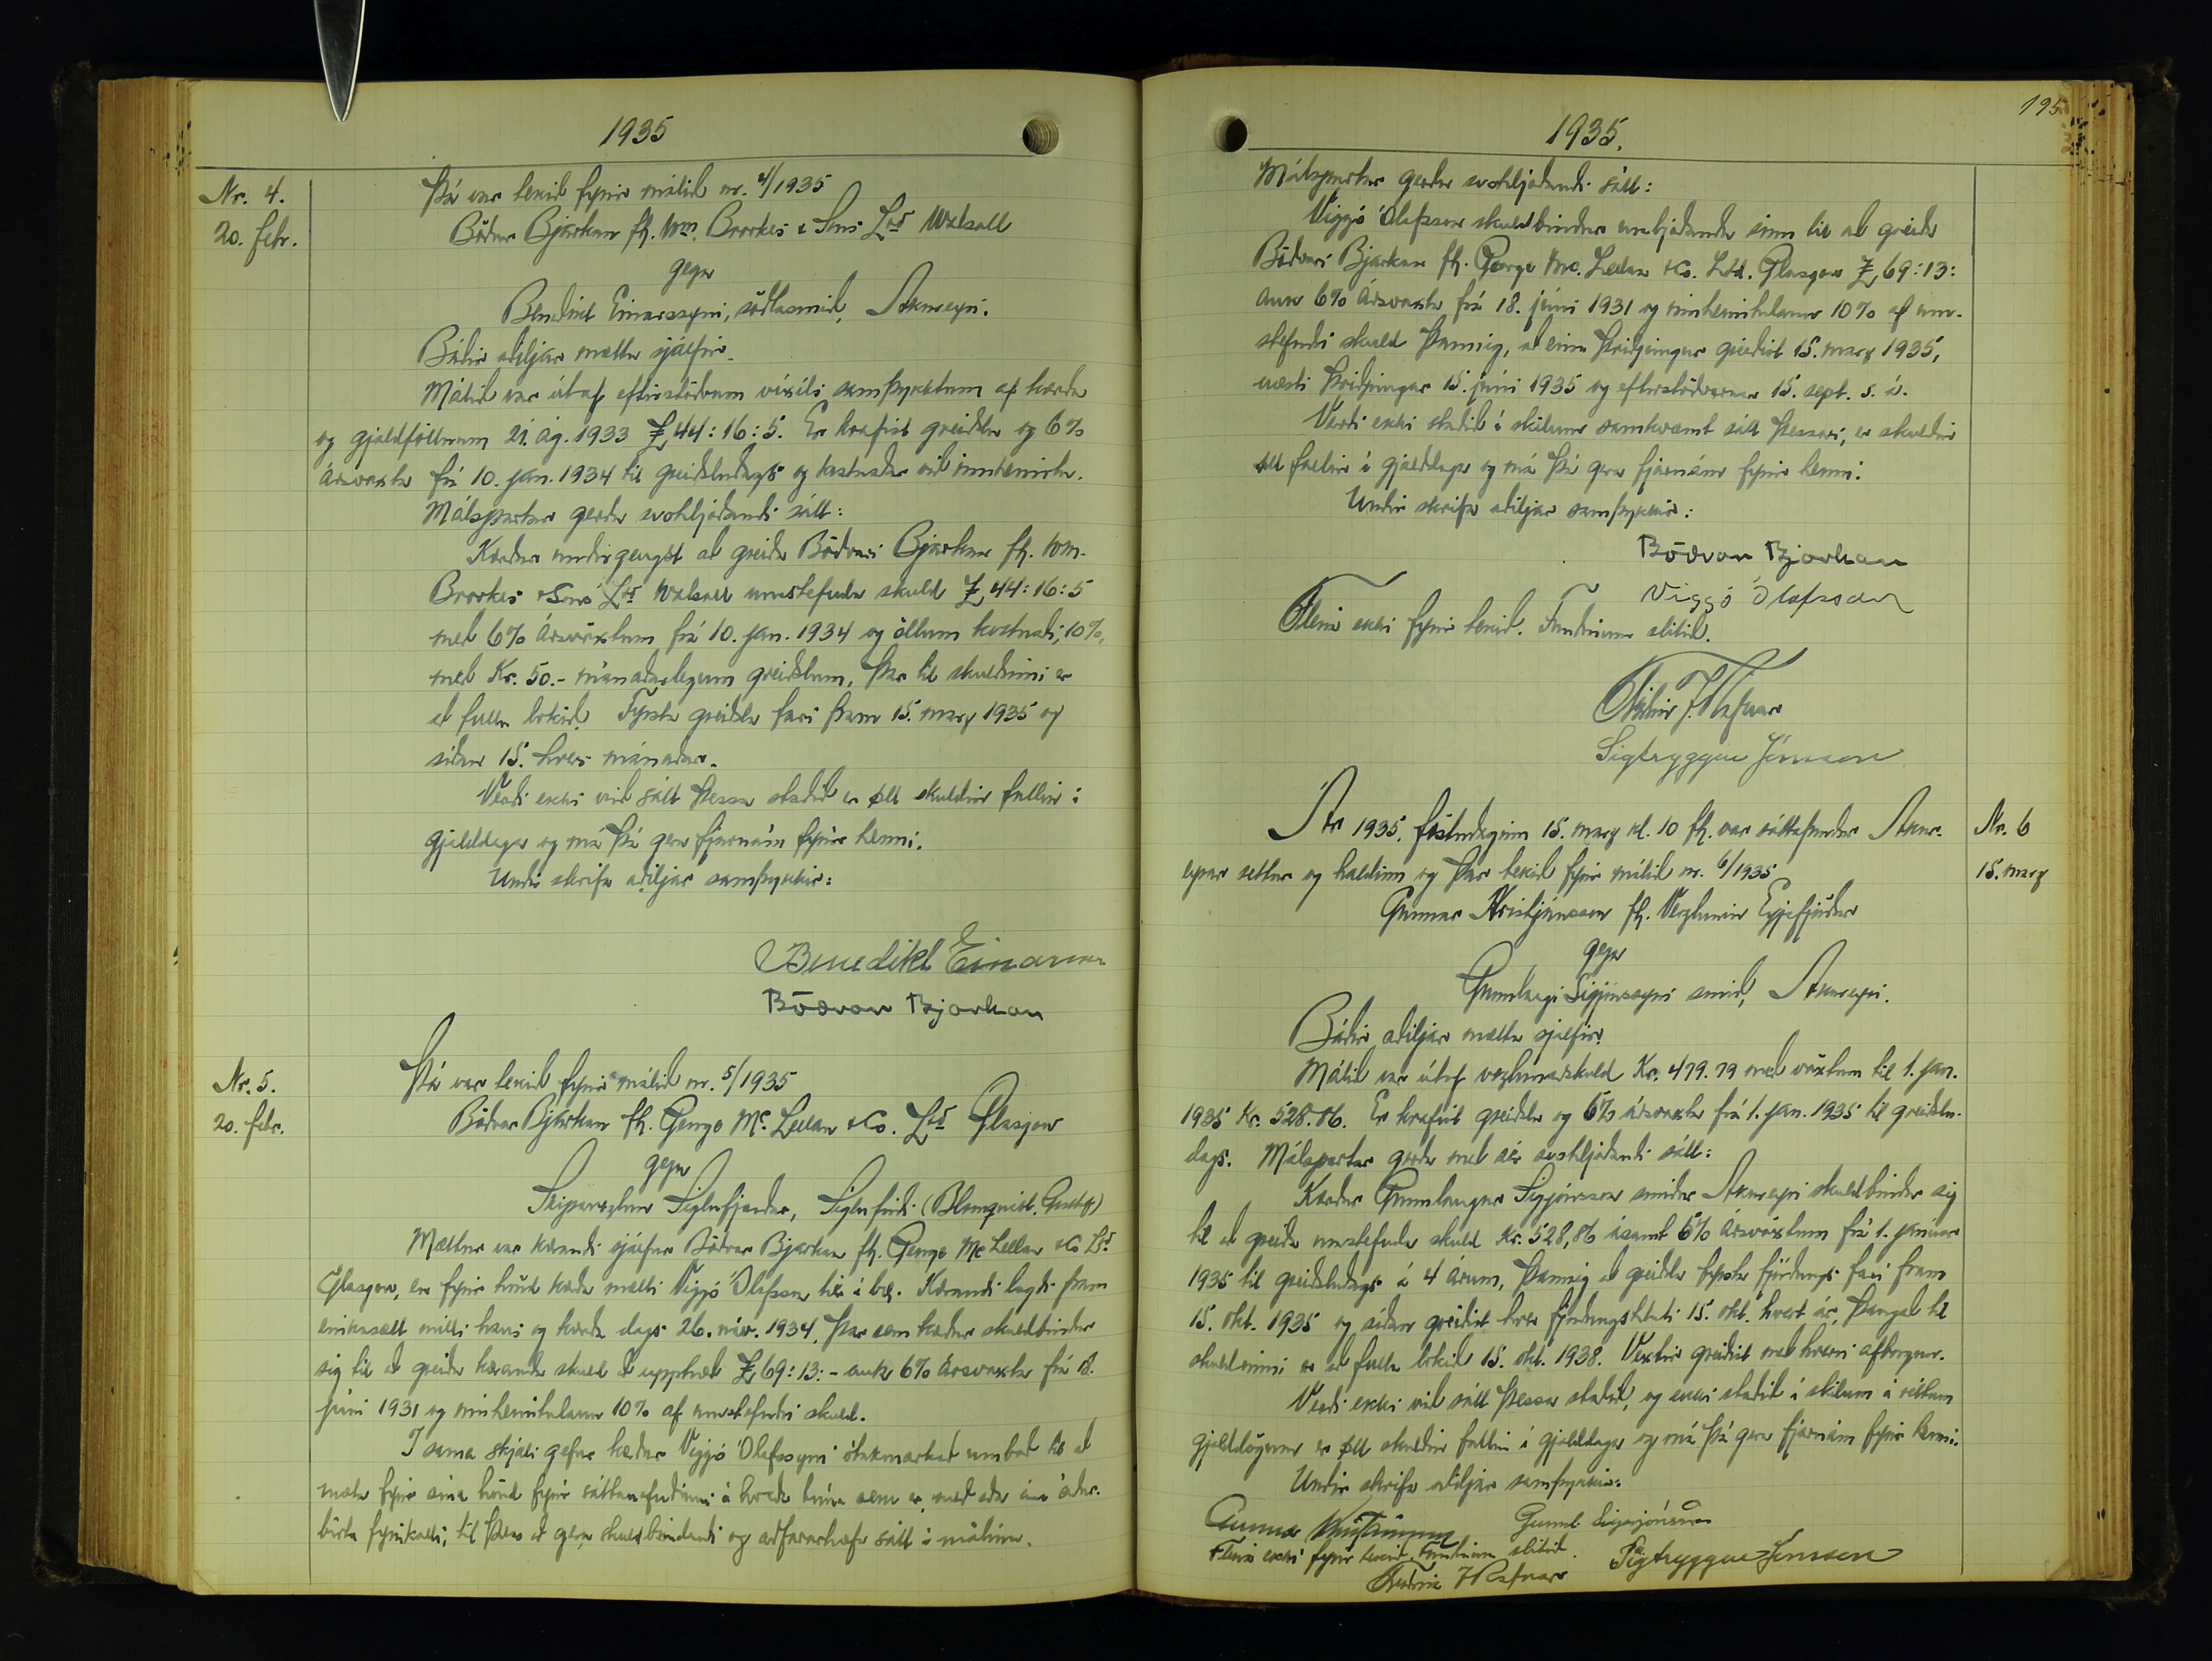 1935
Nr. 4.
20. febr.
Þá var tekið fyrir málið nr. 4/1935
Böðvar Bjarkan fh. Wm. Brookes & Sons Ltd Walsall
gegn
Benedikt Einarssyni, söðlasmið, Akureyri.
Báðir aðiljar mættu sjálfir.
Málið var útaf eftirstöðvum víxils samþykktum af kærða
og gjaldföllnum 21. ág. 1933 £ 44:16:5. Er krafist greiðslu og 6%
ársvaxta frá 10. jan. 1934 til greiðsludags og kostnaðar við innheimtu.
Málspartar gerðu svohljóðandi sátt:
Kærður undirgengst að greiða Böðvari Bjarkan fh. Wm.
Brookes & Sons Ltd Walsall umstefnda skuld £ 44:16:5
með 6% ársvöxtum frá 10. jan. 1934 og öllum kostnaði, 10%,
með Kr. 50.- mánaðarlegum greiðslum, þar til skuldinni er
að fullu lokið. Fyrsta greiðsla fari fram 15. marz 1935 og
síðan 15. hvers mánaðar.
Verði ekki við sátt þessa staðið er öll skuldin fallin í
gjalddaga og má þá gera fjárnám fyrir henni.
Undir skrifa aðiljar samþykkir:
Benedikt Einarsson
Böðvar Bjarkan
Nr. 5.
20. febr.
Þá var tekið fyrir málið nr. 5/1935
Böðvar Bjarkan fh. George Mc. Lellan & Co. Ltd Glasgow
gegn
Skipaverzlun Siglufjarðar, Siglufirði (Blomquist, Gustaf)
Mættur var kærandi sjálfur Böðvar Bjarkan fh. George Mc Lellan & Co Ltd.
Glasgow, en fyrir hönd kærða mætti Viggó Ólafsson
einkasátt milli hans og kærða dags. 26. nóv. 1934, þar sem kærður skuldbindur
sig til að greiða kæranda skuld að upphæð £ 69:13:- auk 6% ársvaxta frá 18.
júní 1931 og innheimtulaun 10% af umstefndri skuld.
Í sama skjali gefur kærður Viggó Ólafssyni ótakmarkað umboð til að
mæta fyrir sína hönd fyrir sáttanefndinni á hvaða tíma sem er, með eða án
birts fyrirkalls, til þess að gera skuldbindandi og aðfararhæfa sátt í málinu.
195
1935.
Málspartar gerðu svohljóðandi sátt:
Viggó Ólafsson skuldbindur umbjóðanda sinn til að greiða
Böðvari Bjarkan fh. George Mc. Lellan & Co. Ltd. Glasgow £ 69:13:
auk 6% ársvaxta frá 18. júní 1931 og innheimtulaun 10% af um-
stefndri skuld þannig, að einn þriðjungur greiðist 15. marz 1935,
næsti þriðjungur 15. júní 1935 og eftirstöðvarnar 15. sept. s. á.
Verði ekki staðið í skilum samkvæmt sátt þessari, er skuldin
öll fallin í gjalddaga og má þá gera fjárnám fyrir henni.
Undir skrifa aðiljar samþykkir:
Böðvar Bjarkan
Viggó Ólafsson
Fleira ekki fyrir tekið. Fundinum slitið.
Friðrik J. Rafnar
Sigtryggur Jónsson
Nr. 6
15. marz
Ár 1935, föstudaginn 15. marz kl. 10 fh. var sáttafundur Akur-
eyrar settur og haldinn og þar tekið fyrir málið nr. 6/1935
Gunnar Kristjánsson fh. Verzlunin Eyjafjörður
gegn
Gunnlaugi Sigjónssyni smið, Akureyri.
Báðir aðiljar mættu sjálfir.
Málið var útaf verzlunarskuld Kr. 479.79 með vöxtum til 1. jan.
1935 Kr. 528.86. Er krafist greiðslu og 6% ársvaxta frá 1. jan. 1935 til greiðslu-
dags. Málspartar gerðu með sér svohljóðandi sátt:
Kærður Gunnlaugur Sigjónsson smiður Akureyri skuldbindur sig
til að greiða umstefnda skuld Kr. 528,86 ásamt 6% ársvöxtum frá 1. janúar
1935 til greiðsludags á 4 árum, þannig að greiðsla fyrsta fjórðungs fari fram
15. okt. 1935 og síðan greiðist hver fjórðungshluti 15. okt. hvert ár, þangað til
skuldinni er að fullu lokið 15. okt. 1938. Vextir greiðist með hverri afborgun.
Verði ekki við sátt þessa staðið, og ekki staðið í skilum á réttum
gjalddögum er öll skuldin fallin í gjalddaga og má þá gera fjárnám fyrir henni.
Undir skrifa aðiljar samþykkir:
Gunnar Kristjánsson Gunnl. Sigurjónsson
Fleira ekki fyrir tekið. Fundinum slitið.
Friðrik J Rafnar Sigtryggur Jónsson